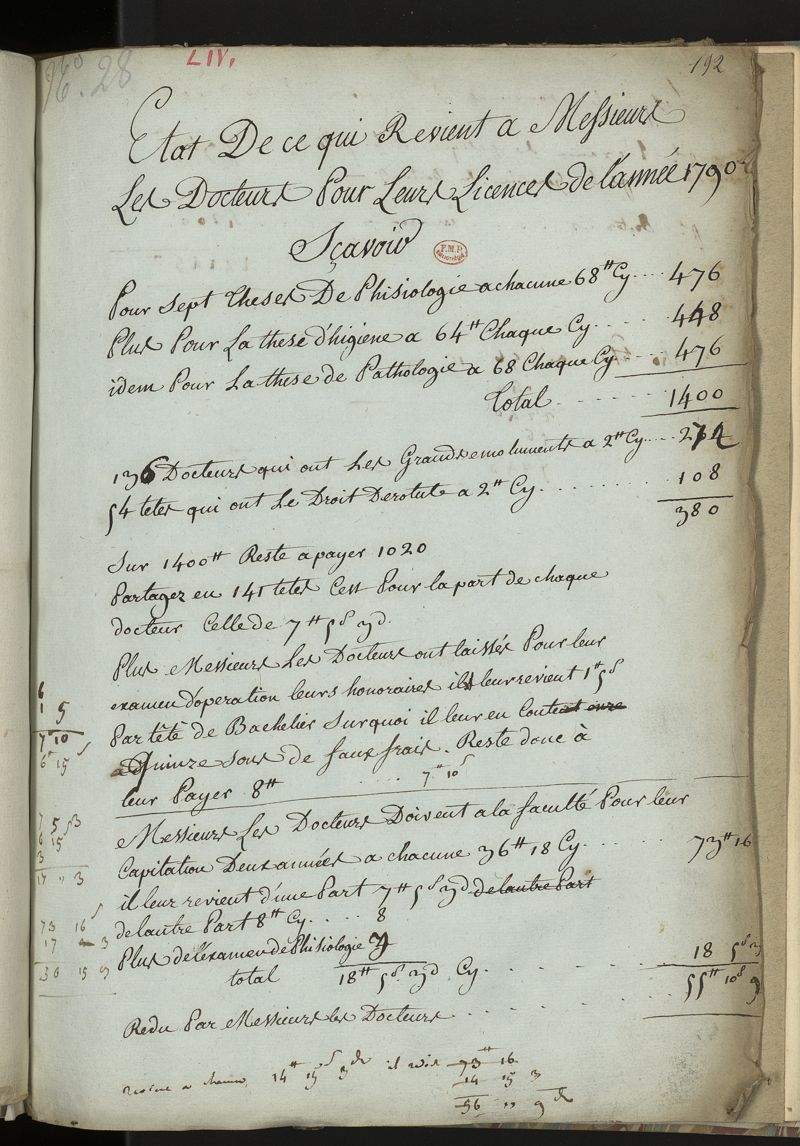 No. 28
LIV.
192
Etat De ce qui Revient a Messieurs
Les Docteurs Pour Leurs Licences de l'année 1790
Sçavoir
F.M.P.
Pour Sept Theses De Phisiologie a chacune 68 # Cy .... 476
Plus Pour La these d'higiene a 64 # Chaque Cy ..... 448
idem Pour La these de Pathologie a 68 Chaque Cy .... 476
Total ....... 1400
136 Docteurs qui ont Les Grands emoluments a 2 # Cy .... 274
54 tetes qui ont Le Droit Derotute a 2 # Cy ....... 108
380
Sur 1400 # Reste a payer 1020
Partagez en 141 tetes C'est Pour la part de chaque
docteur Celle de 7 # 5 s 3 d.
Plus Messieurs Les Docteurs ont laissés Pour leur
examen d'operation leurs honoraires il leur revient 1 # 5 s
Par tété de Bachelier Surquoi il leur en Coute
a Quinze Sous de faux frais. Reste donc à
leur Payer 8 # .... 7 # 10 s
6
1 5
7 # 10
6 # 15 s
Messieurs Les Docteurs Doivent a la faculté Pour leur
Capitation Deux années a chacune 36 # 18 Cy ....... 73 # 16
il leur revient d'une Part 7 # 5 s 3 d de lautre Part
de lautre Part 8 # Cy ..... 8
Plus de l'examen de Phisiologie 3
total 18 # 5 s 3 d Cy ....... 18 5 s 3
Redu Par Messieurs les Docteurs ........ 55 # 10 s 9
7 5 s 3
6 15
3
17 " 3
73 16 s
17 " 3
56 15 9
14 # 15 s 3 d 73 # 16
14 15 3
56 " 9 d